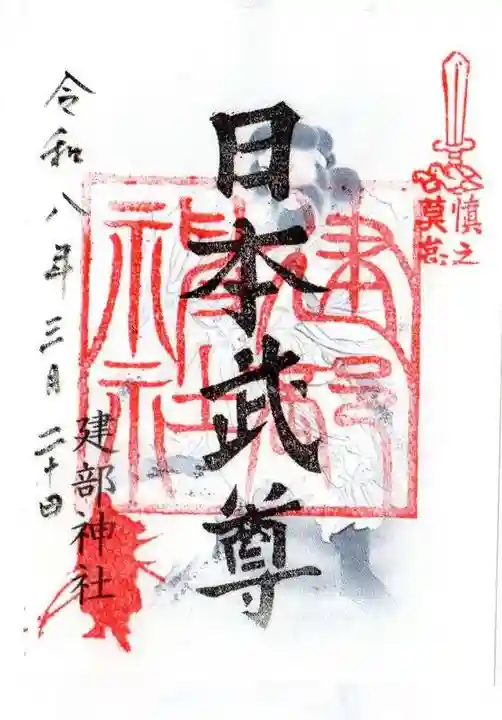 慎之
莫怠
日本武尊
建部神社
建部神社
令和八年三月二十日